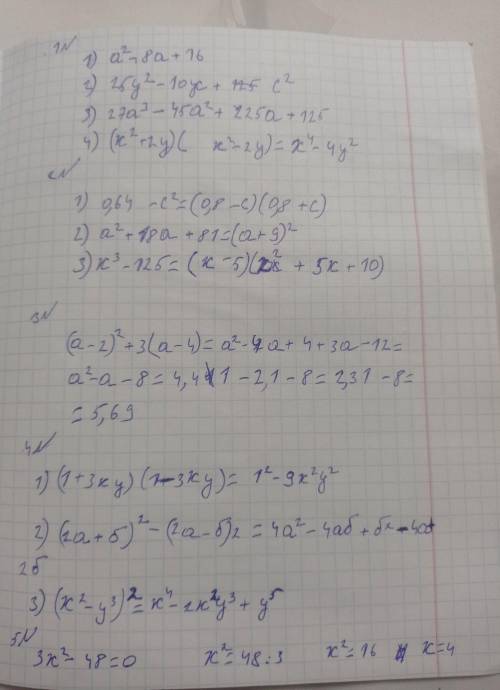 1N
1) a² - 8a + 16
2) 25y² - 10yc + c²
3) 27a³ - 45a² + 225a + 125
4) (x² + 2y)( x² - 2y) = x⁴ - 4y²
N
1) 0,64 - c² = (0,8 - c)(0,8 + c)
2) a² + 18a + 81 = (a + 9)²
3) x³ - 125 = (x - 5)(x² + 5x + 10)
3N
(a - 2)² + 3(a - 4) = a² - 4a + 4 + 3a - 12 =
a² - a - 8 = 4,41 - 2,1 - 8 = 2,31 - 8 =
= 5,69
4N
1) (1 + 3xy)(1 - 3xy) = 1² - 9x²y²
2) (2a + б)² - (2a - б)2 = 4a² - 4aб + б²
2б
3) (x² - y³)² = x⁴ - 2x²y³ + y⁵
5N
3x² - 48 = 0 x² = 48 : 3 x² = 16 x = 4